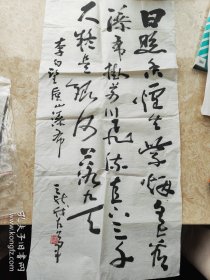 日照香炉生紫烟遥看
瀑布掛前川飛流直下三千
尺疑是銀河落九天
李白望廬山瀑布
孔夫子旧书网